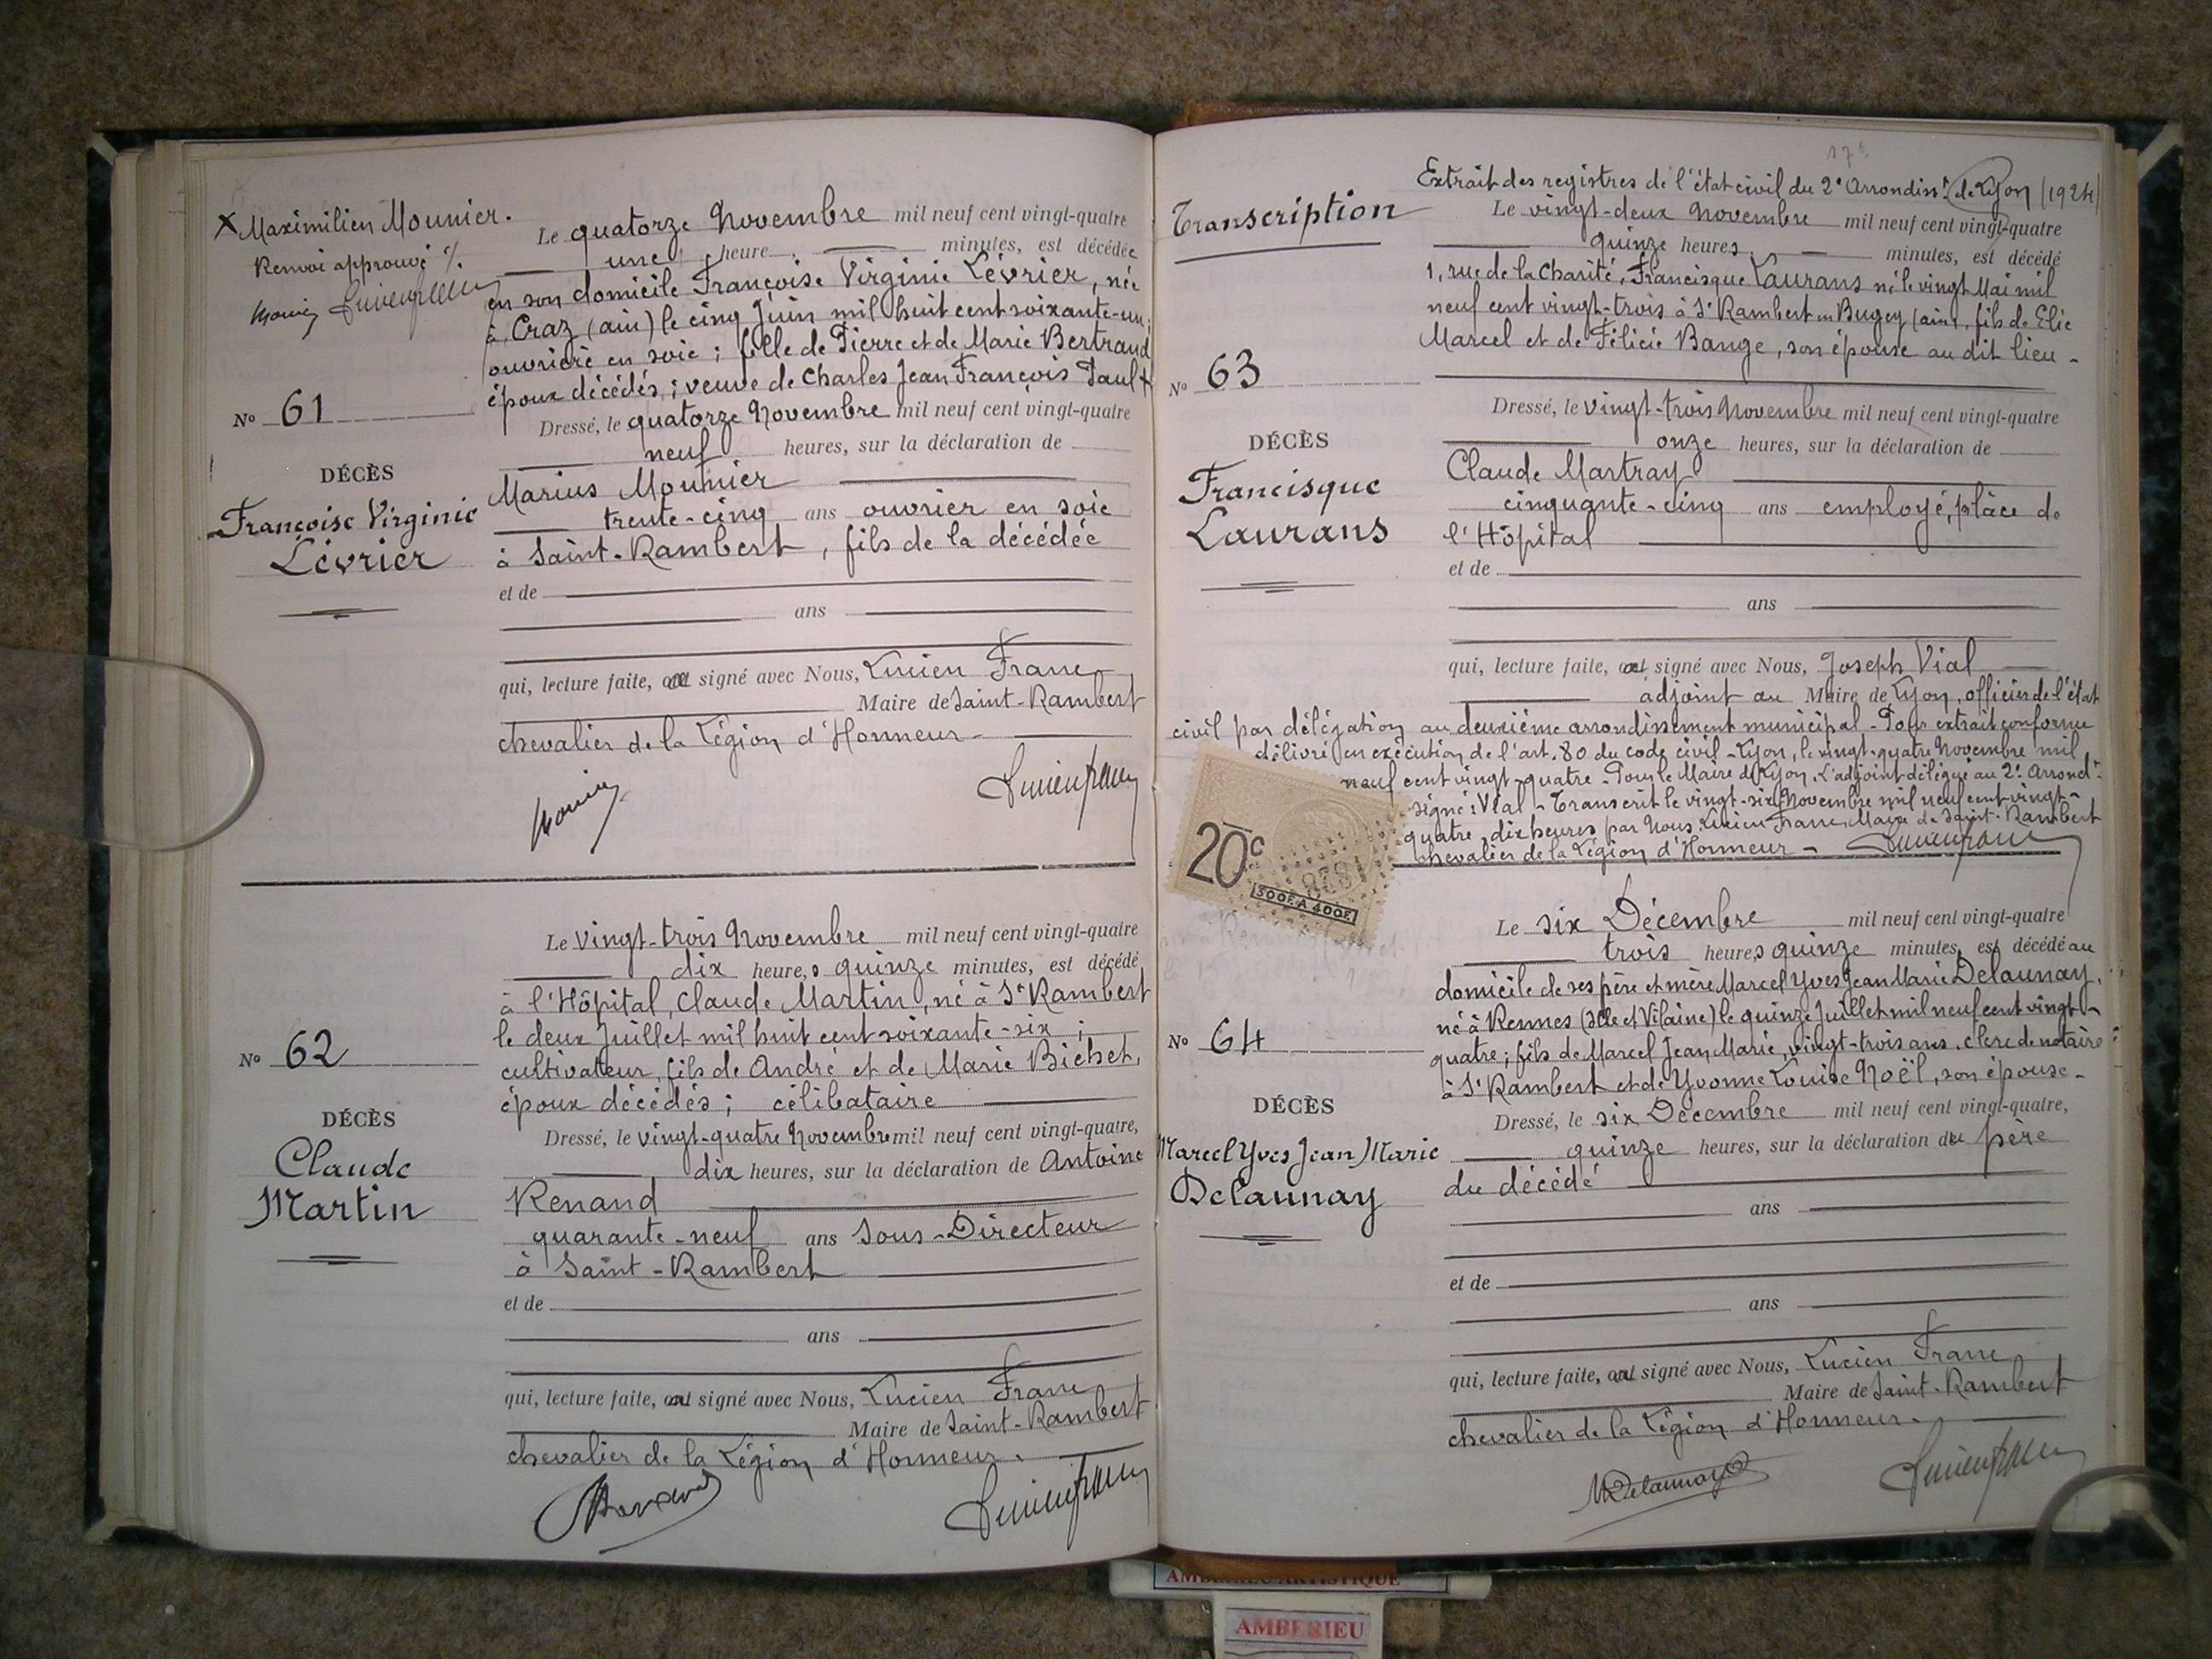 X Maximilien Mounier.
Renvoi approuvé
N° 61
DÉCÈS
Françoise Virginie
Lévrier
Le quatorze Novembre mil neuf cent vingt-quatre
une heure minutes, est décédée
en son domicile Françoise Virginie Lévrier, née
à Craz (ain) le cinq Juin mil huit cent soixante-un;
ouvrière en soie; fille de Pierre et de Marie Bertrand
époux décédés; veuve de Charles Jean François Paul X
Dressé, le quatorze Novembre mil neuf cent vingt-quatre
neuf heures, sur la déclaration de
Marius Mounier
trente-cinq ans ouvrier en soie
à Saint-Rambert, fils de la décédée
et de
ans
qui, lecture faite, a signé avec Nous, Lucien Franc
Maire de Saint-Rambert
chevalier de la Légion d'Honneur-
N° 62
DÉCÈS
Claude
Martin
Le vingt-trois Novembre mil neuf cent vingt-quatre
dix heures quinze minutes, est décédé
à l'Hôpital, Claude Martin, né à St Rambert
le deux Juillet mil huit cent soixante-six;
cultivateur, fils de André et de Marie Bichet,
époux décédés; célibataire
Dressé, le vingt-quatre Novembre mil neuf cent vingt-quatre,
dix heures, sur la déclaration de Antoine
Renand
quarante-neuf ans Sous-Directeur
à Saint-Rambert
et de
ans
qui, lecture faite, a signé avec Nous, Lucien Franc
Maire de Saint-Rambert
chevalier de la Légion d'Honneur.
Transcription
N° 63
DÉCÈS
Francisque
Laurans
Extrait des registres de l'état civil du 2e Arrondisst de Lyon (1924)
Le vingt-deux Novembre mil neuf cent vingt-quatre
quinze heures minutes, est décédé
1, rue de la Charité, Francisque Laurans né le vingt Mai mil
neuf cent vingt-trois à St Rambert en Bugey (ain), fils de Elie
Marcel et de Félicie Bange, son épouse au dit lieu-
Dressé, le vingt-trois Novembre mil neuf cent vingt-quatre
onze heures, sur la déclaration de
Claude Martray
cinquante-cinq ans employé, place de
l'Hôpital
et de
ans
qui, lecture faite, a signé avec Nous, Joseph Vial
adjoint au Maire de Lyon, officier de l'état
civil par délégation au deuxième arrondissement municipal - Pour extrait conforme
délivré en exécution de l'art. 80 du code civil - Lyon, le vingt-quatre Novembre mil
neuf cent vingt-quatre - Pour le Maire de Lyon. L'adjoint délégué au 2e Arrondt
signé: Vial - Transcrit le vingt-six Novembre mil neuf cent vingt-
quatre, dix heures par Nous Lucien Franc, Maire de Saint-Rambert
chevalier de la Légion d'Honneur -
20c
300F. A 400F.
N° 64
DÉCÈS
Marcel Yves Jean Marie
Delaunay
Le six Décembre mil neuf cent vingt-quatre
trois heures quinze minutes, est décédé au
domicile de ses père et mère Marcel Yves Jean Marie Delaunay,
né à Rennes (Ille et Vilaine) le quinze Juillet mil neuf cent vingt-
quatre; fils de Marcel Jean Marie, vingt-trois ans, clerc de notaire
à St Rambert et de Yvonne Louise Noël, son épouse-
Dressé, le six Décembre mil neuf cent vingt-quatre,
quinze heures, sur la déclaration du père
du décédé
ans
et de
ans
qui, lecture faite, a signé avec Nous, Lucien Franc
Maire de Saint-Rambert
chevalier de la Légion d'Honneur.
MDelaunay
AMBERIEU ARTISTIQUE
AMBERIEU